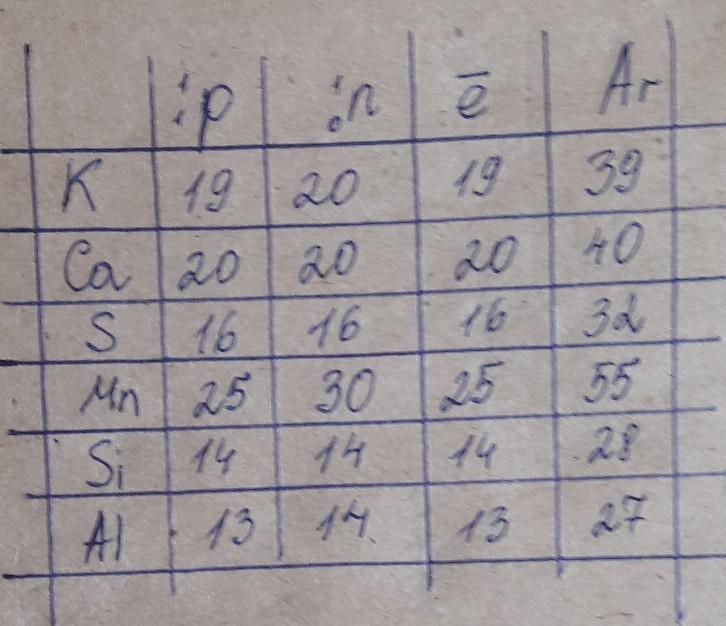 ¹₁p ¹₀n ē Ar
K 19 20 19 39
Ca 20 20 20 40
S 16 16 16 32
Mn 25 30 25 55
Si 14 14 14 28
Al 13 14 13 27